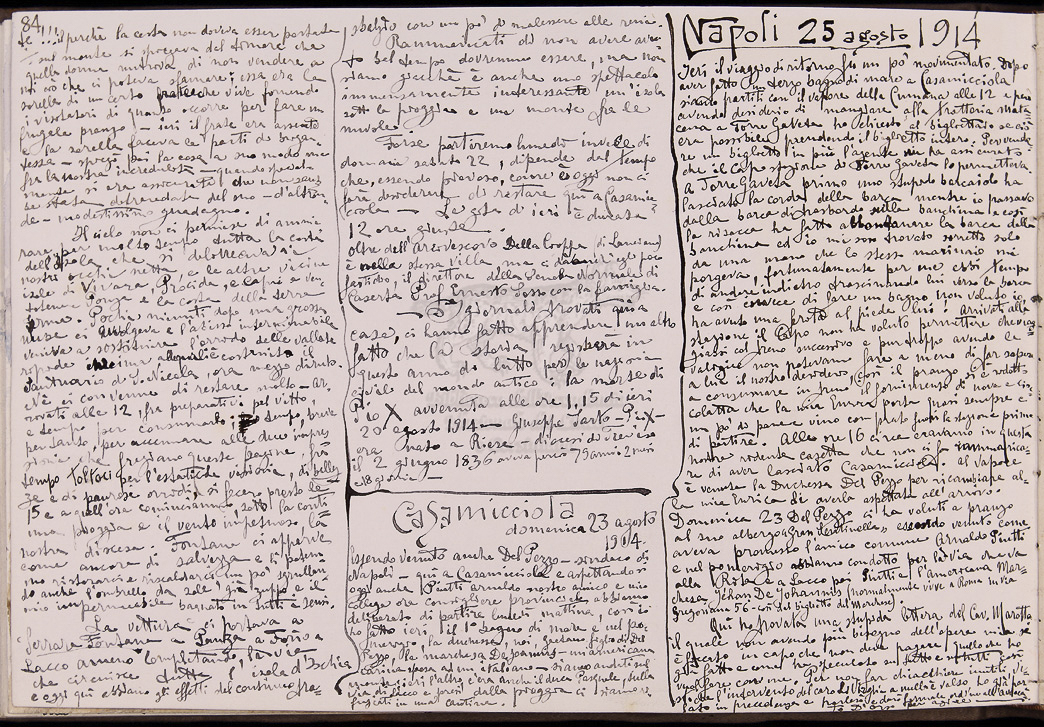 84
te !!! perchè la cosa non doveva esser portata
sul monte si spiegava dal timore che
quella donna mirava di non vendere a
noi ciò che ci poteva sfamare; essa era la
sorella di un certo frate che vive fornendo
i visitatori di quanto occorre per fare un
frugale pranzo – ieri il frate era assente
e la sorella faceva le parti di
spiegò poi la cosa a suo modo
fra la nostra incredulità – quando
si era assicurata che non
se stata detraudata del suo – d'altron-
de – modestissimo guadagno.
Il cielo non ci permise di ammi-
rare per molto tempo tutta la costa
dell'isola che si delineava ai
nostri occhi netta, e le altre vicine
isole di Vivara, Procida, e Capri e Ven-
totene Ponza e la costa della terra
ferma. Pochi minuti dopo una grossa
nube ci avvolgeva e l'abisso interminabile
veniva a sostituire l'orrido delle vallate
santuario di S. Nicola, ora mezzo diruto.
Nè ci convenne di restare molto – ar-
rivati alle 12, fra preparativi pel vitto,
e tempo per consumarlo il tempo, breve
pertanto, per accennare alle due impres-
sioni che fregiano queste pagine, fra
tempo toltoci per l'estatiche visioni, di bellez-
ze e di paurose orridità si fecero presto le
15 e a quell'ora cominciammo, sotto la conti-
nua pioggia e il vento impetuoso, la
nostra discesa. Fontana ci apparve
come ancora di salvezza e lì potem-
mo ristorarci e riscaldarci un pò
do anche l'ombrello da sole già zuppo e il
mio impermeabile bagnato in tutti i sensi.
La vettura ci portava a
Serrara Fontana a Panza a Forio a
Lacco Ameno completando la via
che circuisce tutta l'isola d'Ischia
e oggi qui abbiamo gli effetti del continuo
con un pò di malessere alle reni.
Rammaricati di non avere avu-
to bel tempo dovremmo essere, ma non
siamo giacchè è anche uno spettacolo
immensamente interessante un'isola
sotto la pioggia e una monte fra le
nuvole.
Forse partiremo lunedì invece di
domani sabato 22, dipende dal tempo
che, essendo piovoso, come è oggi non ci
fare desiderare di restare qui a Casamic-
ciola – La gita di ieri è durata
12 ore giuste.
Oltre dell'arcivescovo Della Cioppa (di Lanciano)
è nella stessa Villa ma ci dà anche egli poco
fastidio, il direttore della Scuola Normale di
Caserta Prof. Ernesto Sesso con la famiglia.
I giornali trovati qui a
casa, ci hanno fatto apprendere un altro
fatto che la storia registrerà in
questo anno di lutto per le nazioni
civili del mondo antico: la morte di
Pio X avvenuta alle ore 1,15 di ieri
20 agosto 1914 – Giuseppe Sarto – Pio X –
era nato a Riese – diocesi di Treviso
il 2 giugno 1836 aveva perciò 79 anni 2 mesi
e 18 giorni –
Casamicciola
domenica 23 agosto
1914.
Essendo venuto anche Del Pezzo – sindaco di
Napoli – qui a Casamicciola e aspettando si
oggi anche Piutti Arnaldo nostro amico e mio
collega ora consigliere provinciale abbiamo
deliberato di partire lunedì mattina, così io
ho fatto ieri il 1° bagno di mare e, nel po-
meriggio la duchessa, noi, Gaetano figlio di Del
Pezzo, la marchesa De Joannis – un'americana
sposa ad un italiano – siamo andati sul
monte e di l'altro e era anche il duca Pasquale, sulla
via di Lacco e presi dalla pioggia ci siamo ri-
fugiati in una cantina.
Napoli 25 agosto 1914
Ieri il viaggio di ritorno fu un pò movimentato. Dopo
aver fatto un terzo bagno di mare a Casamicciola
siamo partiti con il vapore della Cumana alle 12 e però
avendo desiderio di mangiare alla trattoria
a Torre Gaveta ho chiesto al bigliettaio se ci
era possibile prendendo il biglietto intero. Per vende-
re un biglietto in più l'agente mi ha assicurato
che il capo stazione di Torregaveta lo permetteva.
A Torregaveta primo uno stupido barcaiolo ha
lasciato la corda della barca mentre io passavo
dalla barca di trasbordo sulla banchina e così
la risacca ha fatto allontanare la barca dalla
banchina ed io mi son trovato sorretto solo
da una mano che lo stesso marinaio mi
porgeva, fortunatamente per me ebbi tempo
di andare indietro trascinando lui verso la barca
e così invece di fare un bagno non voluto io,
ha avuto una frotta al piede lui! Arrivati alla
stazione il Capo non ha voluto permettere che viag-
giassi col treno successivo e purtroppo avendo le
valigie non potevamo fare a meno di far sapere
a lui il nostro desiderio, così il pranzo si è ridotto
a consumare in treno, il fornimento di uova e cioc-
colatta che la mia Enrica porta quasi sempre e
un pò di pane e vino con prato fuori la stazione prima
di partire. Alle ore 16 circa eravamo in questa
nostra ridente casetta che non ci fa rammarica-
re di aver lasciato Casamicciola. Al vapore
è venuta la Duchessa Del Pezzo per ricambiare al-
la mia Enrica di averla aspettata all'arrivo.
Domenica 23 Del Pezzo ci ha voluti a pranzo
al suo albergo "Gran Sentinella" essendo venuto come
aveva promesso l'amico comune Arnaldo Piutti
e nel pomeriggio abbiamo condotto per la via che va
alla Rita e a Lacco poi Piutti e l'americana Mar-
chesa Jehan De Johannis (normalmente vive a Roma in via
Gregoriana 56 – così dal biglietto del Marchese)
Qui ho trovato una stupida lettera del Cav. Marotta
il quale non avendo più bisogno dell'opera mia se
n'è facendo un capo che non deve pagare quello che ho
già fatto e come ha speculato su tutto e su tutti così
vuol fare con me. Per non far chiacchiere inutili, vi-
sto che l'intervento del caro Del Vecchio a nulla è valso, ho già par-
lato in precedenza e